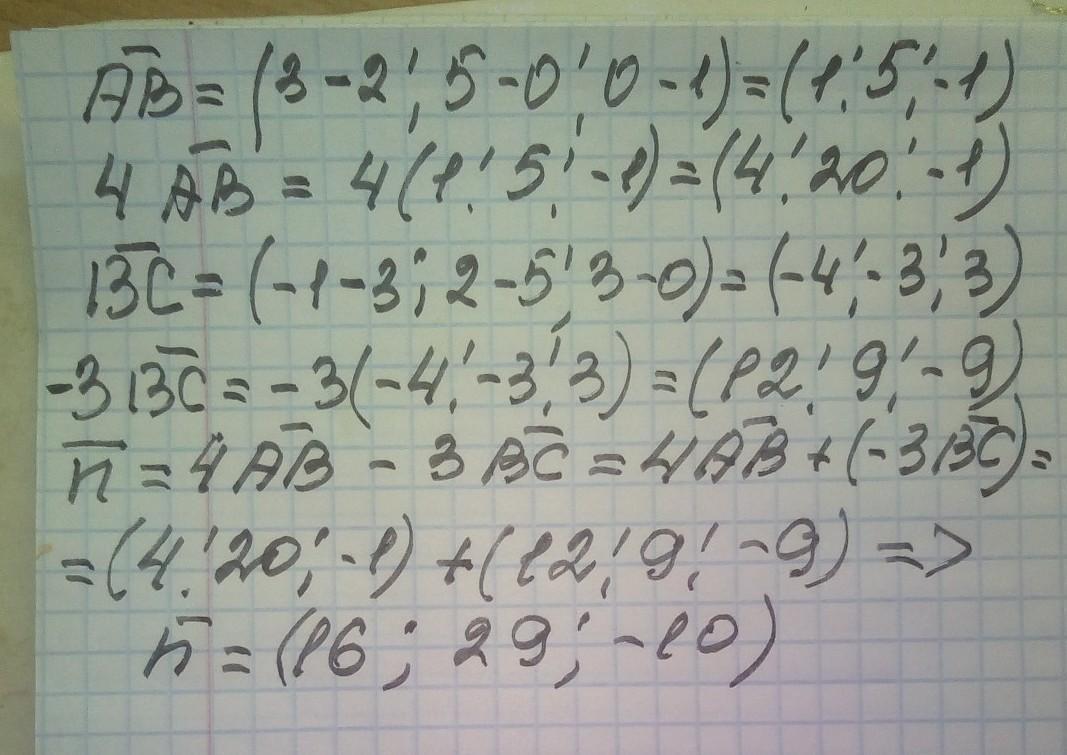 A̅B̅ = (3-2; 5-0; 0-1) = (1; 5; -1)
4 A̅B̅ = 4(1; 5; -1) = (4; 20; -1)
B̅C̅ = (-1-3; 2-5; 3-0) = (-4; -3; 3)
-3 B̅C̅ = -3(-4; -3; 3) = (12; 9; -9)
n̅ = 4A̅B̅ - 3B̅C̅ = 4A̅B̅ + (-3B̅C̅) =
= (4; 20; -1) + (12; 9; -9) =>
n̅ = (16; 29; -10)